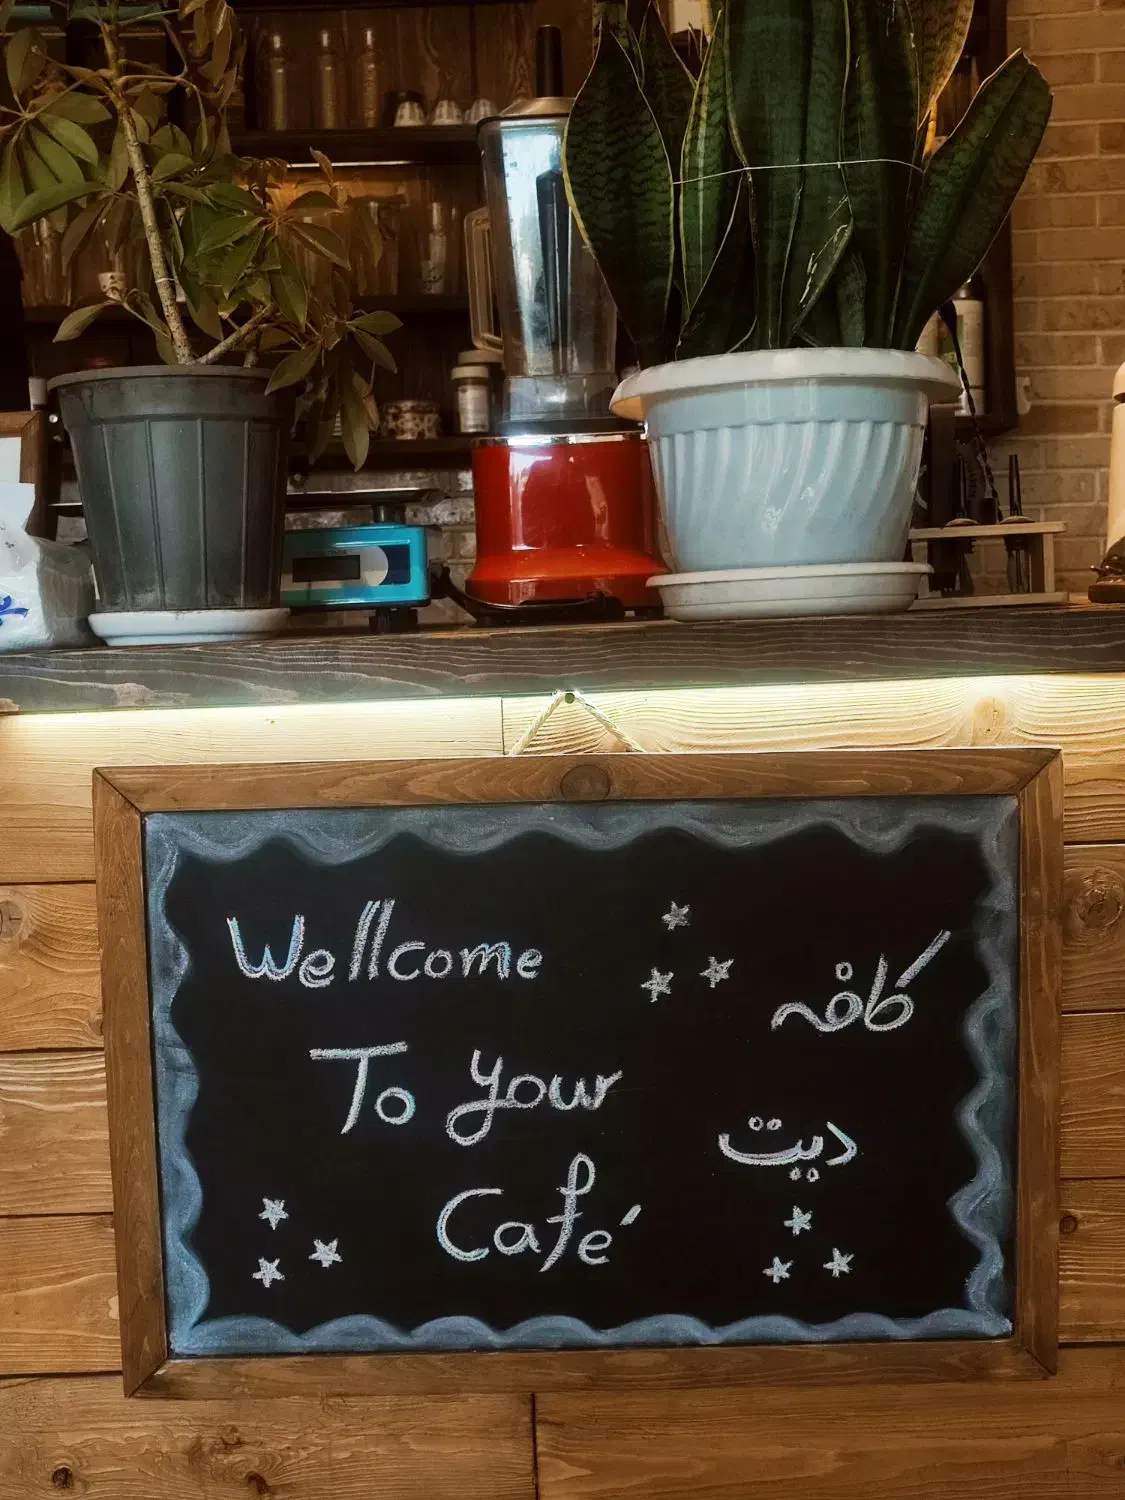 Wellcome
To your
Café
کافه
دیت